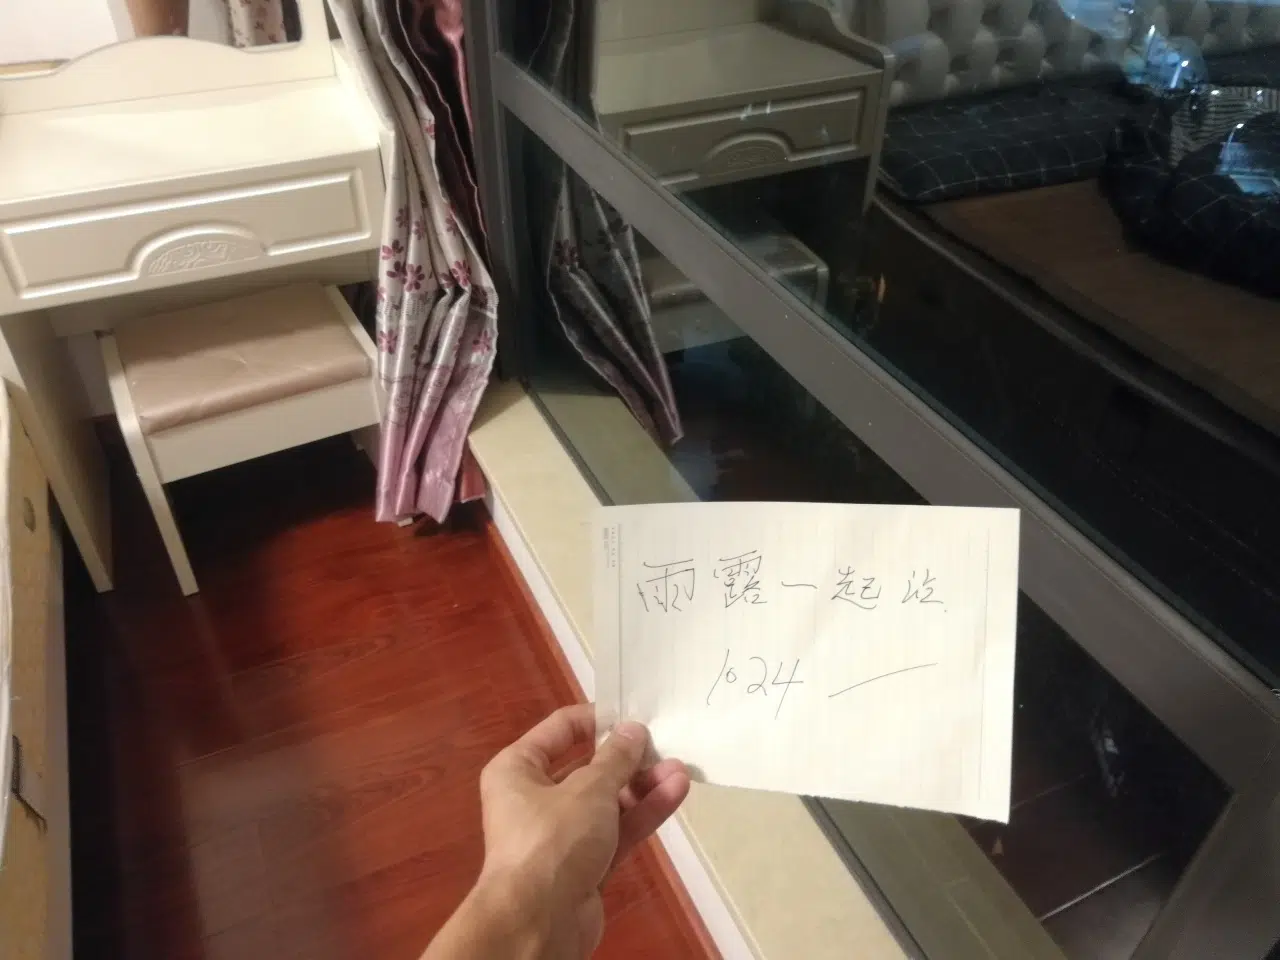 雨露一起沾
1024